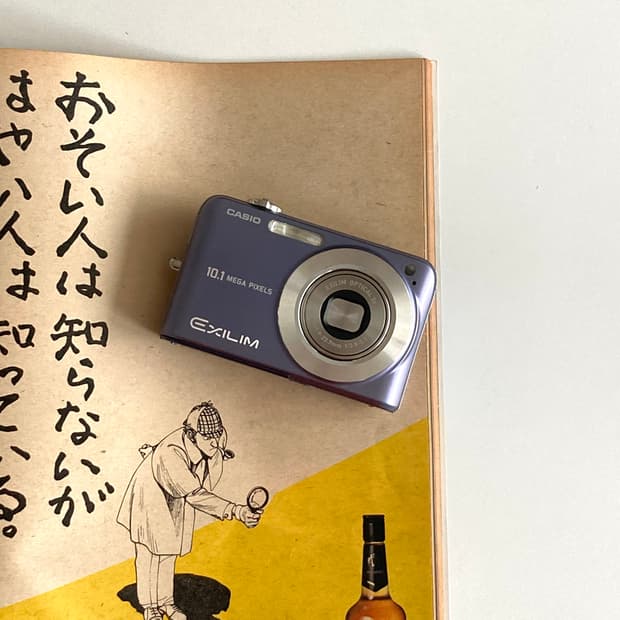 おそい人は知らないが
はやい人は知っている。
CASIO
10.1 MEGA PIXELS
EXILIM
EXILIM OPTICAL